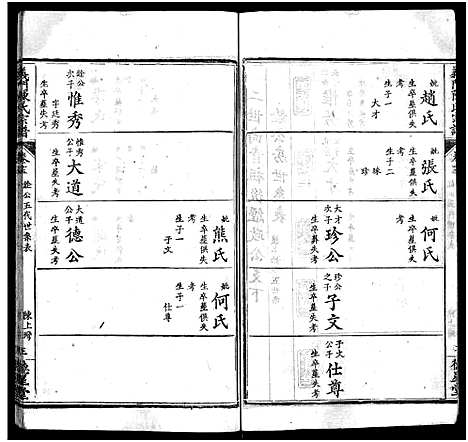 義門陳氏宗譜
妣趙氏
生卒墓俱失
考
生子一
大才
妣張氏
生卒墓俱失
考
生子二
珠
珍
妣何氏
生卒墓俱失
考
大才
公子
珍公
生卒墓失考
珍公
之子
子文
生卒墓失考
子文
公子
仕尊
生卒墓失考
義門陳氏宗譜
銓公五代世系表
陳上灣
詮公
次子
惟秀
字廷秀
生卒墓失考
惟秀
公子
大道
生卒墓失考
大道
公子
德公
生卒墓失考
妣熊氏
生卒墓俱失
考
生子一
子文
妣何氏
生卒墓俱失
考
生子一
仕尊